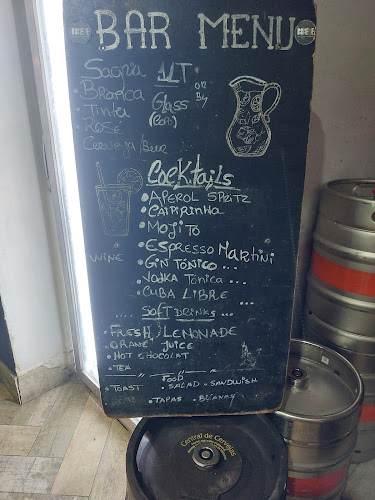 BAR MENU
Sagria 1LT
Branca
Tinta
Rosé
Glass
OR
By
Cerveja/Beer
Cocktails
• APEROL SPRITZ
• CAIPIRINHA
• MOJITO
• ESPRESSO MARTINI
WINE
• GIN TÓNICO ...
• VODKA TÓNICA ...
• CUBA LIBRE ...
... SOFT DRINKS ...
• FRESH LEMONADE
• ORANE JUICE
• HOT CHOCOLAT
• TEA
FOOD
• TOAST • SALAD • SANDWISH
• TAPAS • BIFANAS
Central de Cervejas